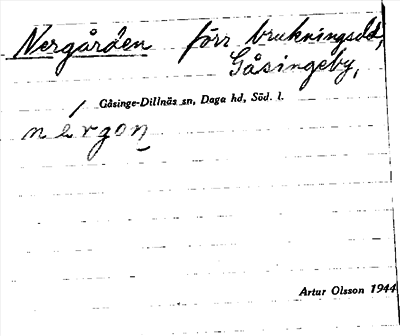 Nergården förr brukningsdel,
Gåsingeby,
Gåsinge-Dillnäs sn, Daga hd, Söd. l.
nérgon
Artur Olsson 1944